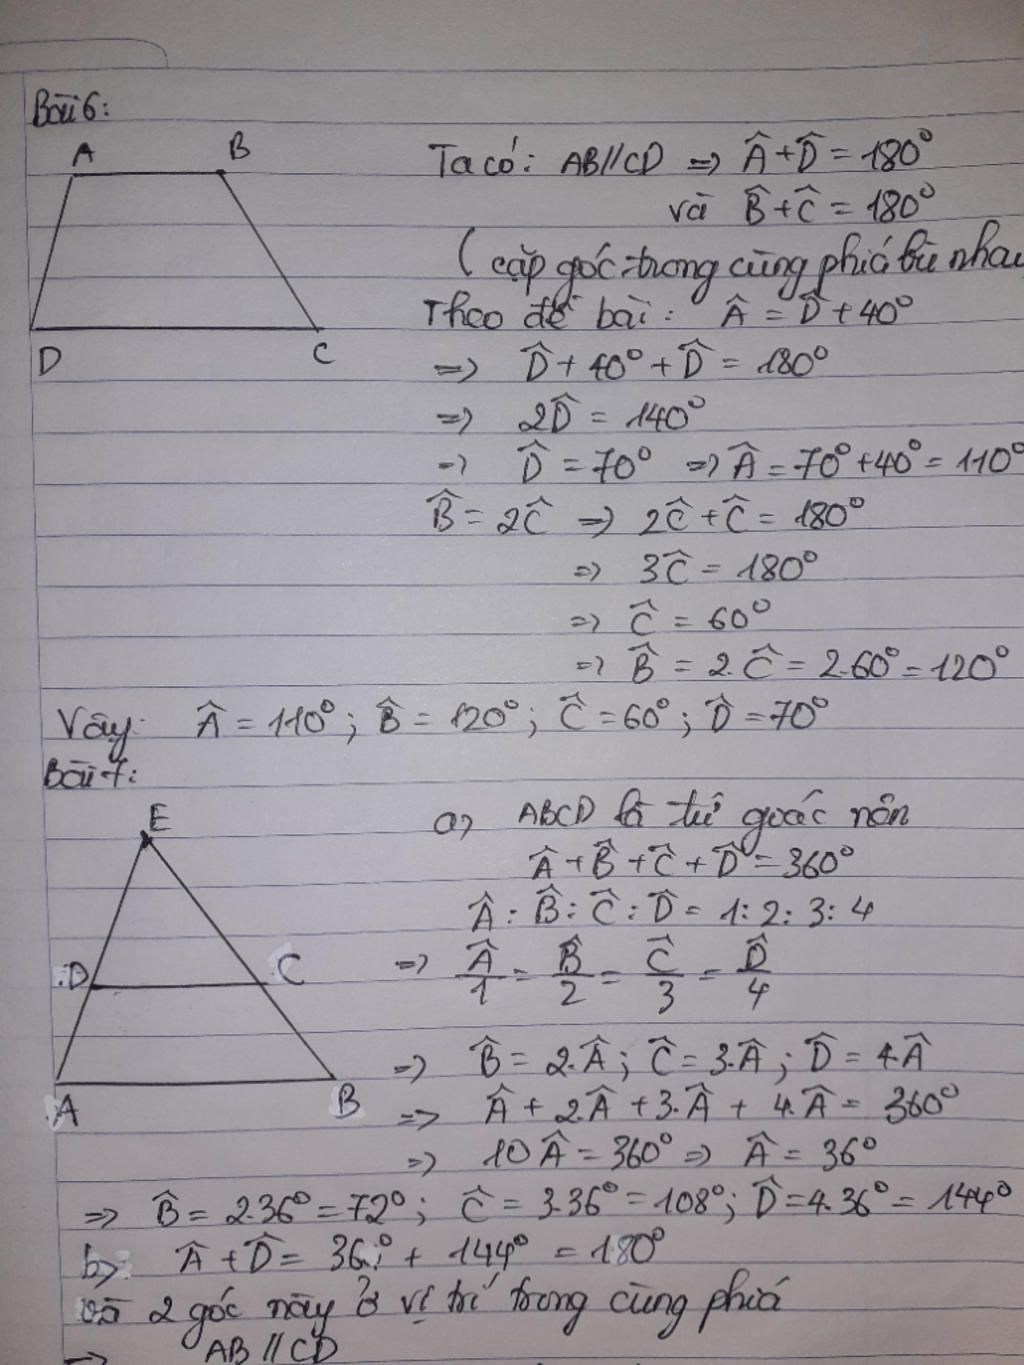 Bài 6:
A B
D C
Ta có: AB//CD => Â+D̂ = 180°
và B̂+Ĉ = 180°
( cặp góc trong cùng phiá bù nhau
Theo đề bài: Â = D̂+40°
=> D̂+ 40° + D̂ = 180°
=> 2D̂ = 140°
=> D̂ = 70° => Â = 70°+40° = 110°
B̂ = 2Ĉ => 2Ĉ+Ĉ = 180°
=> 3Ĉ = 180°
=> Ĉ = 60°
=> B̂ = 2.Ĉ = 2.60° = 120°
Vậy: Â = 110°; B̂ = 120°; Ĉ = 60°; D̂ = 70°
Bài 7:
E
D C
A B
a, ABCD là tứ goác nên
Â+B̂+Ĉ+D̂ = 360°
Â:B̂:Ĉ:D̂ = 1:2:3:4
=> Â/1 = B̂/2 = Ĉ/3 = D̂/4
=> B̂ = 2.Â; Ĉ = 3.Â; D̂ = 4.Â
=> Â + 2.Â + 3.Â + 4.Â = 360°
=> 10Â = 360° => Â = 36°
=> B̂ = 2.36° = 72°; Ĉ = 3.36° = 108°; D̂ = 4.36° = 144°
b, Â+D̂ = 36° + 144° = 180°
và 2 góc này ở vị trí trong cùng phiá
=> AB//CD